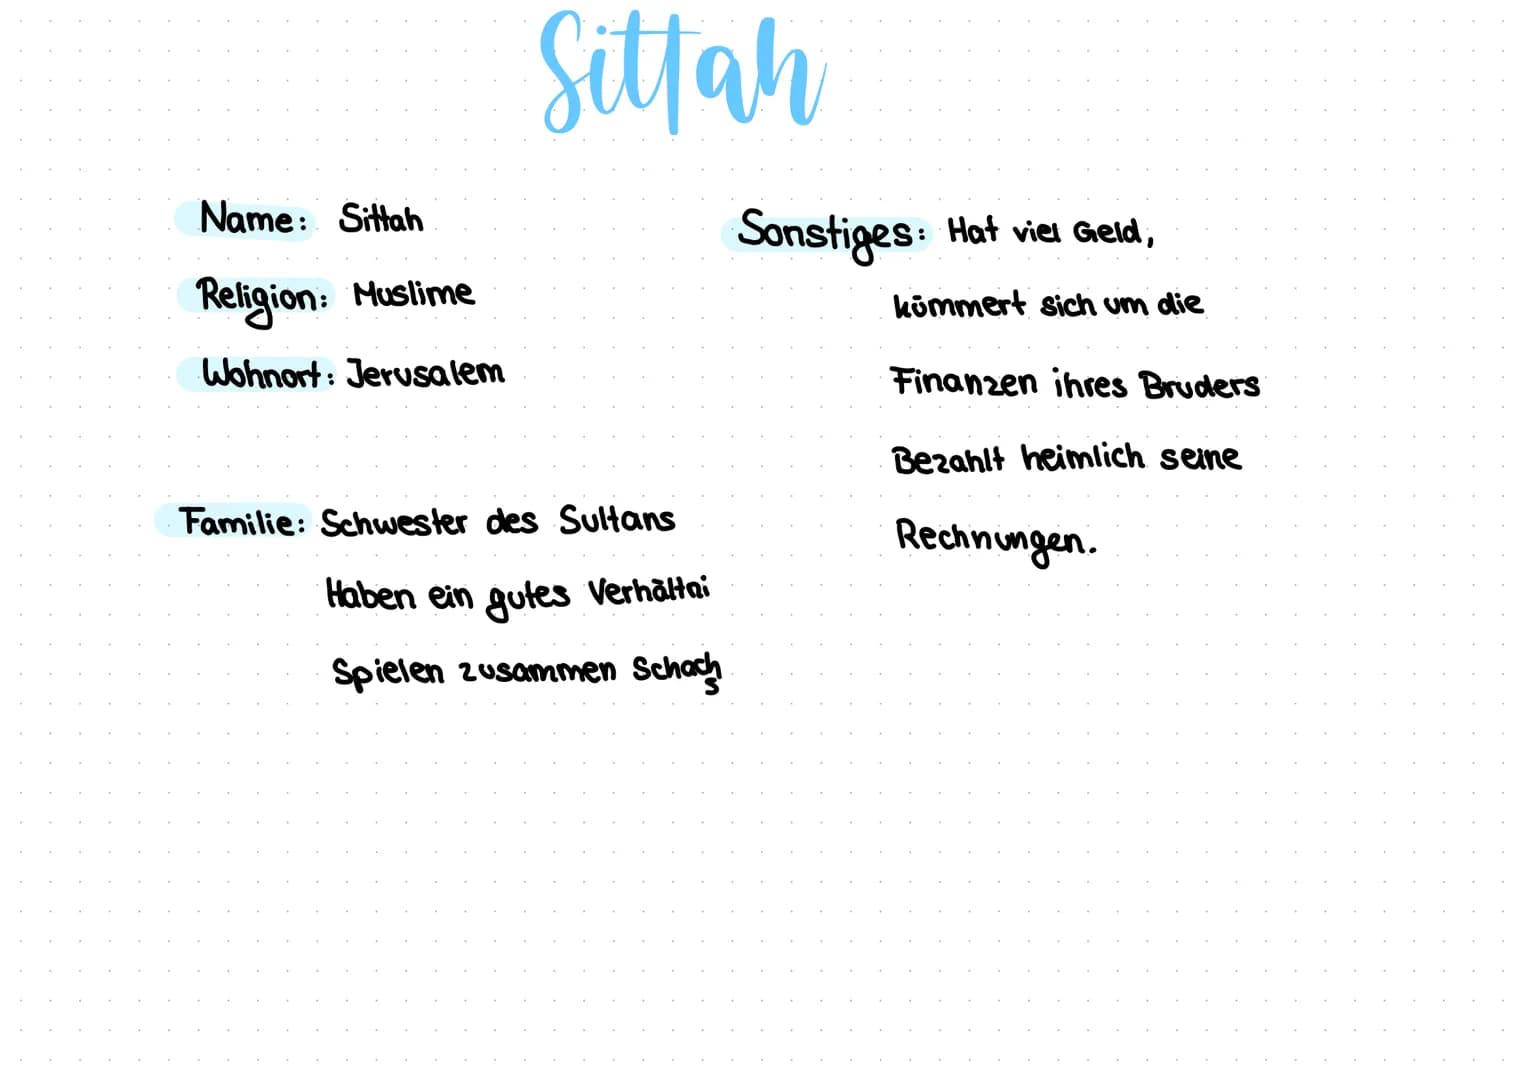 Sittah
Name: Sittah
Religion: Muslime
Wohnort: Jerusalem
Familie: Schwester des Sultans
Haben ein gutes Verhältni
Spielen zusammen Schach
s
Sonstiges: Hat viel Geld,
kümmert sich um die
Finanzen ihres Bruders
Bezahlt heimlich seine
Rechnungen.